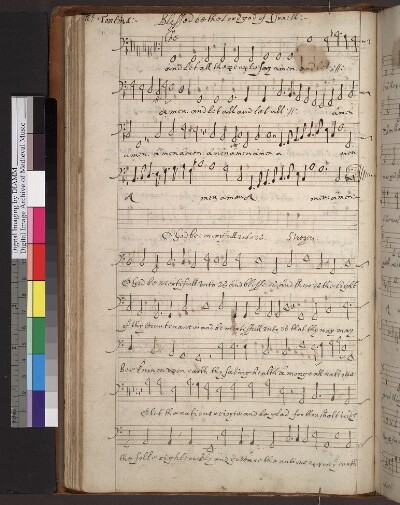 Blessed be the Lord god of Israell:
and let all the people say amen and let
amen and let all and let all :||: amen
amen amen amen amen amen a men
A men amen A men amen
O god be mercifull unto us
O god be mercifull unto us and blesse us and shew us the light
of thy countenance and be mercifull unto us that thy way may
bee known upon earth thy saving health amonge all nations
O let the nations rejoyce and be glad for thou shalt judge
the folke righteously and governe the nations upon earth
Digital Imaging by DIAMM
Digital Image Archive of Medieval Music